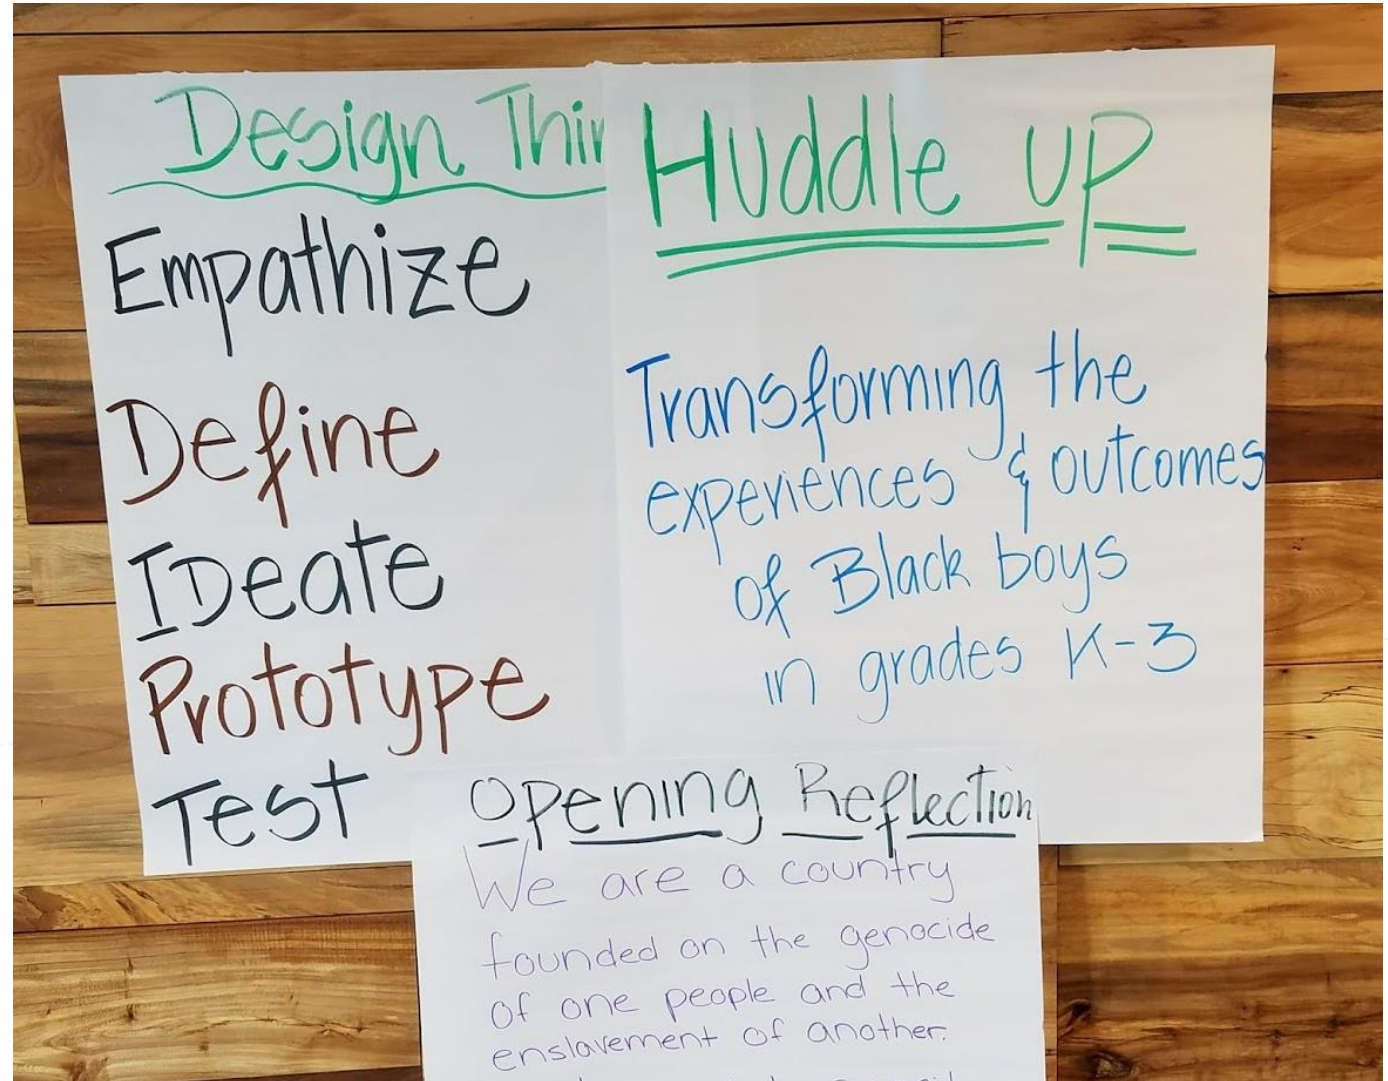 Design Thin
Empathize
Define
IDeate
Prototype
Test
Huddle UP
Transforming the
experiences & outcomes
of Black boys
in grades K-3
Opening Reflection
We are a country
founded on the genocide
of one people and the
enslavement of another.